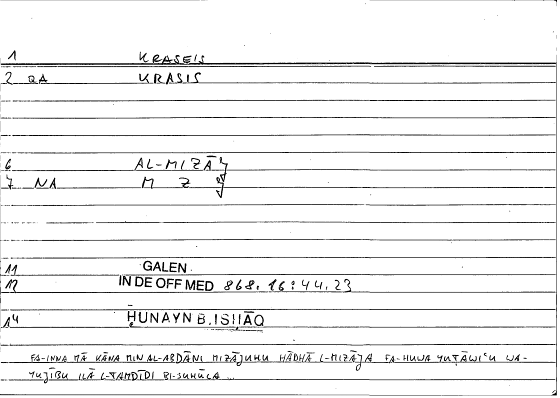 1 KRASEIS
2 QA KRASIS
6 AL-MIZĀǦ
7 NA M Z Ǧ
11 GALEN
12 IN DE OFF MED 868.16:44.23
14 ḤUNAYN B.ISḤĀQ
FA-INNA MĀ KĀNA MIN AL-ABDĀNI MIZĀǦUHU HĀḎĀ L-MIZĀǦA FA-HUWA YUṬĀWIʿU WA-
YUǦĪBU ILĀ L-TAMDĪDI BI-SUHŪLA ...